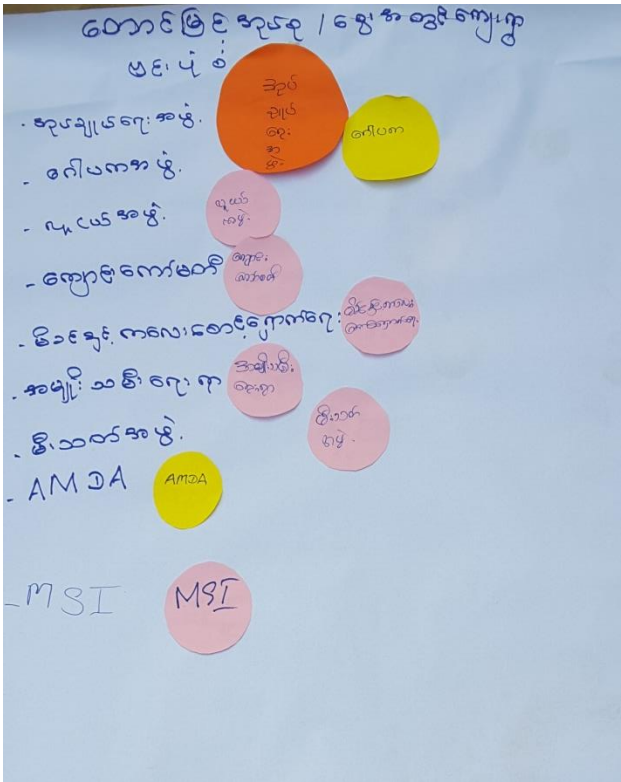 တောင်မြင့် အုပ်စု / ချွေးအတွင်ကျေးရွာ
ဗွင်းပုံစံ
- အုပ်ချုပ်ရေးအဖွဲ့.
အုပ်
ချုပ်
ရေး
အ
ဖွဲ့
- ဂေါပကအဖွဲ့.
ဂေါပက
- လူငယ်အဖွဲ့.
လူငယ်
အဖွဲ့.
- ကျောင်းကော်မတီ
ကျောင်း
ကော်မတီ
- မိခင်နှင့် ကလေးစောင့်ရှောက်ရေး
မိခင်နှင့်ကလေး
စောင့်ရှောက်ရေး
- အမျိုးသမီးရေးရာ
အမျိုးသမီး
ရေးရာ
- မီးသတ်အဖွဲ့.
မီးသတ်
အဖွဲ့.
- AMDA
AMDA
- MSI
MSI